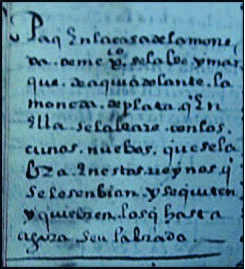 Paq̄ En la casa de la mone
da. de mexco. se labre y mar
que. de aqui adelante. la
moneda. de plata. q̄ En
Ella se labrare. con los.
cunos. nuebos. que se la
bra. En estos. reynos. q̄
se los enbian. y se quiten.
y quiebren. los q̄ hasta
agora. se an labrado.